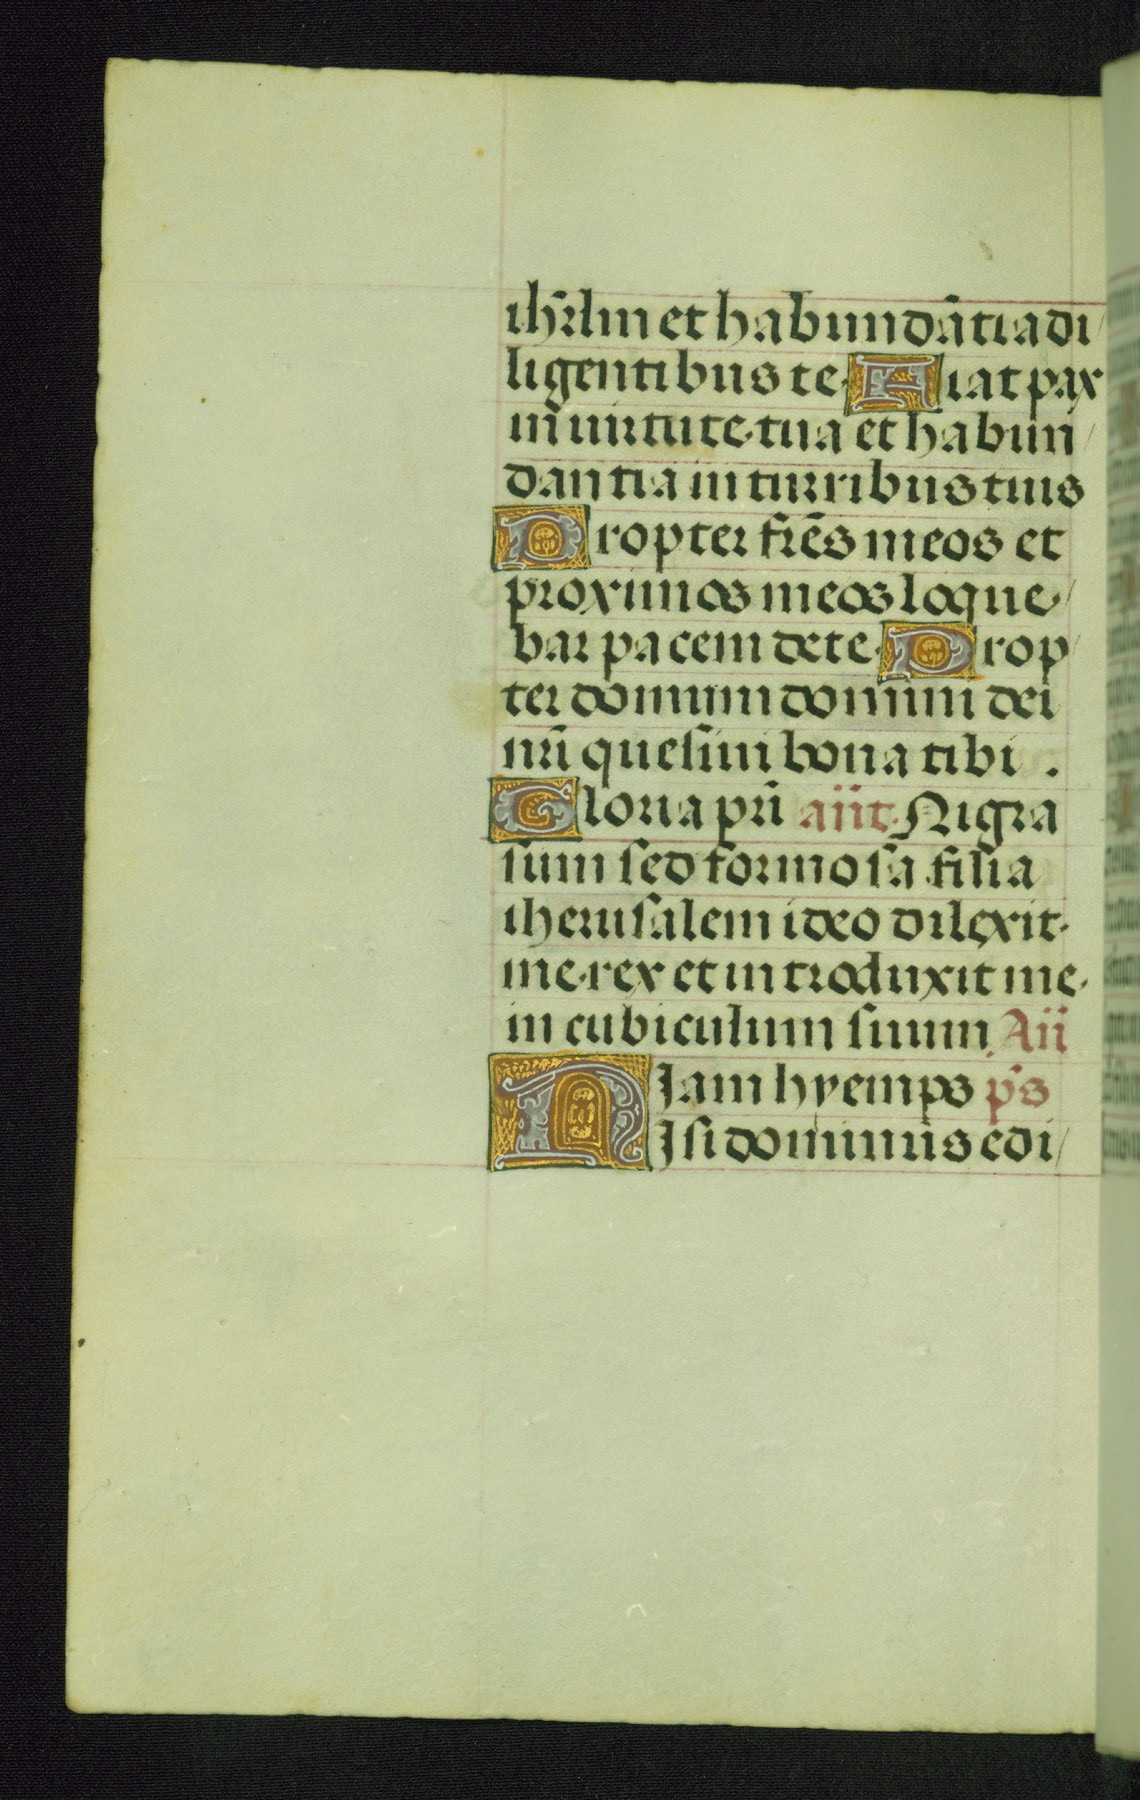 ihr̄lm et habundātia di/
ligentibus te. Fiat pax
in uirtute tua et habun/
dantia in turribus tuis
Propter frēs meos et
proximos meos loque/
bar pacem de te. Prop/
ter domum domini dei
nr̄i quesiui bona tibi .
Gloria pr̄i añt. Nigra
sum sed formosa filia
iherusalem ideo dilexit
me rex et introduxit me
in cubiculum suum. Añ
Iam hyemps p̄s
NIsi dominus edi/